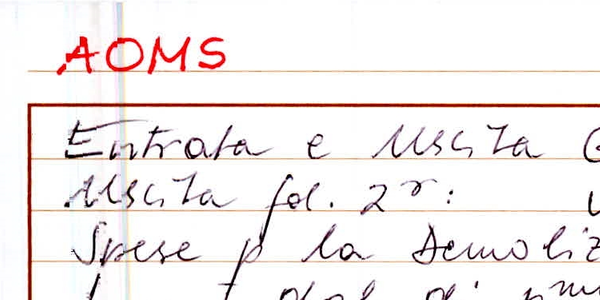 AOMS
Entrata e Uscita
Uscita fol. 2r:
Spese p la Demoliz